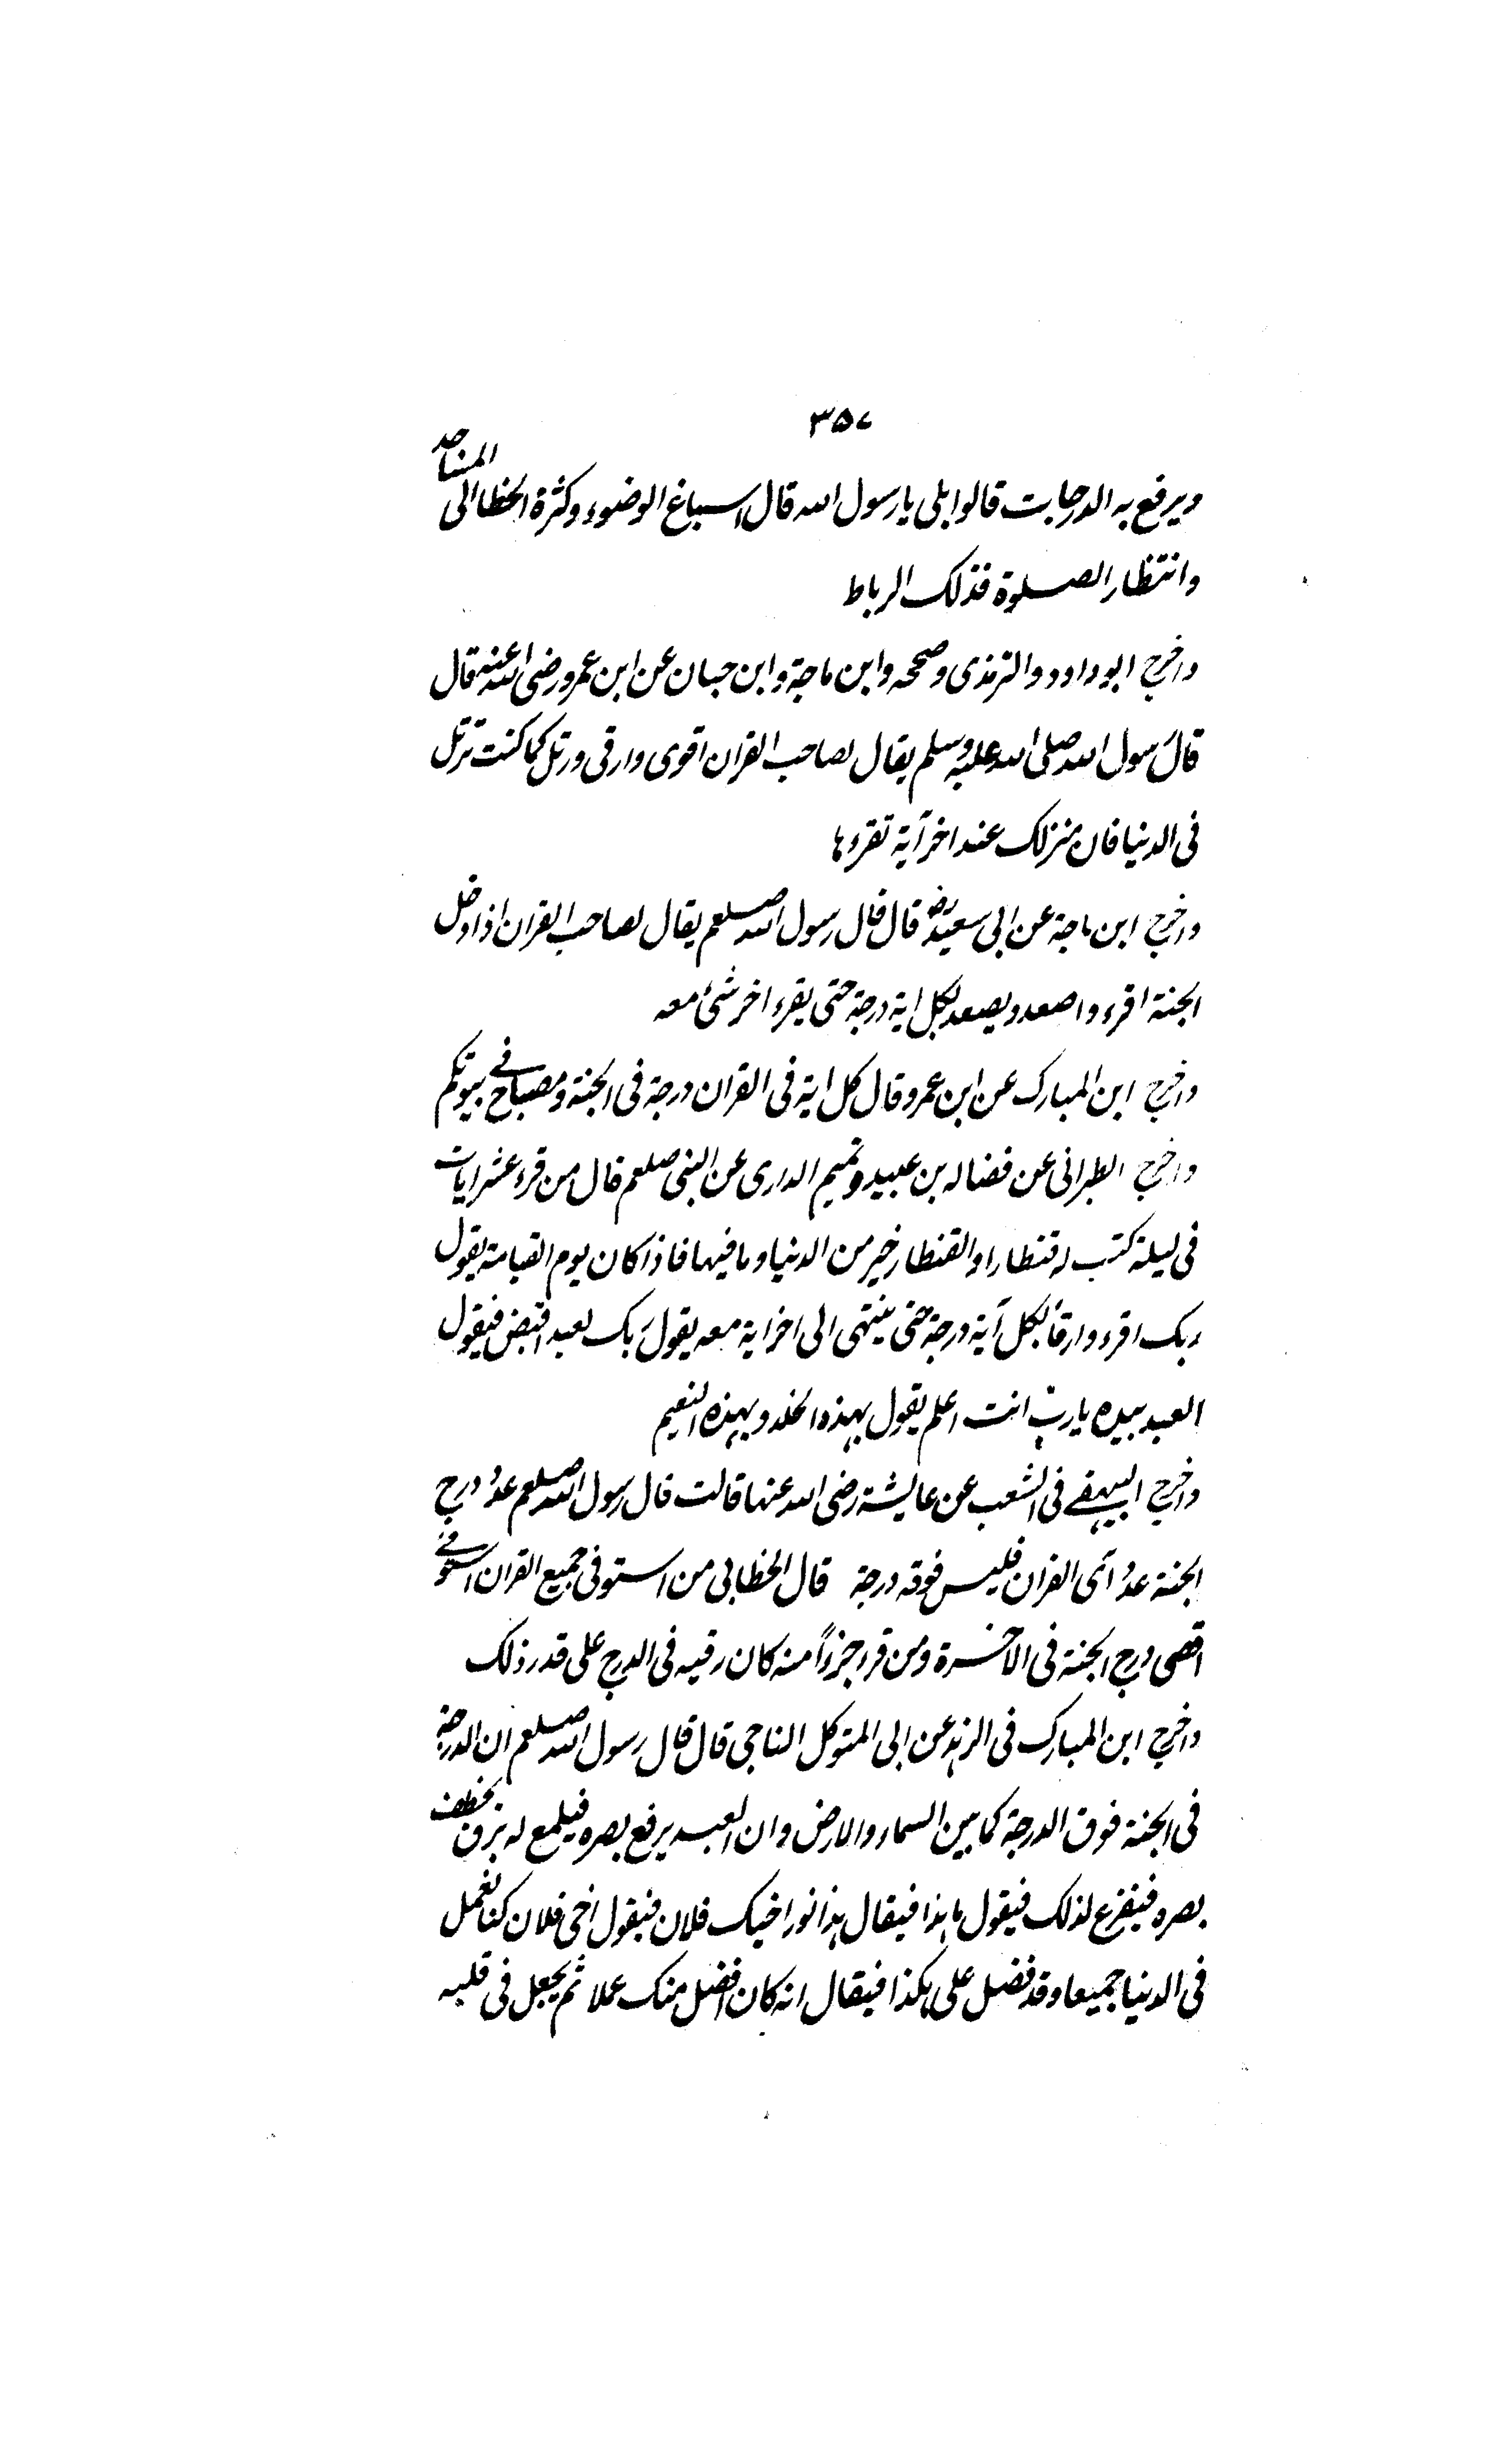 ۳۵۷
ویرفع به الدرجات قالوا بلی یا رسول الله قال اسباغ الوضوء وکثرة الخطا الی المساجد
وانتظار الصلوة فذلک الرباط
واخرج ابو داود والترمذی وصححه وابن ماجة وابن حبان عن ابن عمرو رضی الله عنه قال
قال رسول الله صلی الله علیه وسلم یقال لصاحب القران اقری وارقی ورتل کما کنت ترتل
فی الدنیا فان منزلک عند اخر آیة تقرءها
واخرج ابن ماجة عن ابی سعید رض قال قال رسول الله صلعم یقال لصاحب القران اذا دخل
الجنة اقرء واصعد ویصعد بکل ایة درجة حتی یقرء اخر شئ معه
واخرج ابن المبارک عن ابن عمرو قال کل ایة فی القران درجة فی الجنة ومصباح فی بیوتکم
واخرج الطبرانی عن فضاله بن عبید وتمیم الداری عن النبی صلعم قال من قرء عشر ایات
فی لیلة کتب له قنطارا والقنطار خیر من الدنیا وما فیها فاذا کان یوم القیامة یقول
ربک اقرء وارقأ لکل آیة درجة حتی ینتهی الی اخر ایة معه یقول ربک لعبد اقبض فیقول
العبد بیده یا رب انت اعلم یقول بهذه الخلد وبهذه النعیم
واخرج البیهقے فی الشعب عن عایشة رضی الله عنها قالت قال رسول الله صلعم عدد درج
الجنة عدد آی القران فلیس فوقه درجة قال الخطابی من استوفی جمیع القران استوفے
اقصی درج الجنة فی الآخرة ومن قرء جزءاً منه کان رقیه فی الدرج علی قدر ذلک
واخرج ابن المبارک فی الزهد عن ابی المتوکل الناجی قال قال رسول الله صلعم ان الدرجة
فی الجنة فوق الدرجة کما بین السماء والارض وان العبد یرفع بصره فیلمع له برق یخطف
بصره فیفزع لذلک فیقول ما هذا فیقال هذا نور اخیک فلان فیقول اخی فلان کنا نعمل
فی الدنیا جمیعا وقد فضل علی هکذا فیقال انه کان افضل منک عملا ثم یجعل فی قلبه